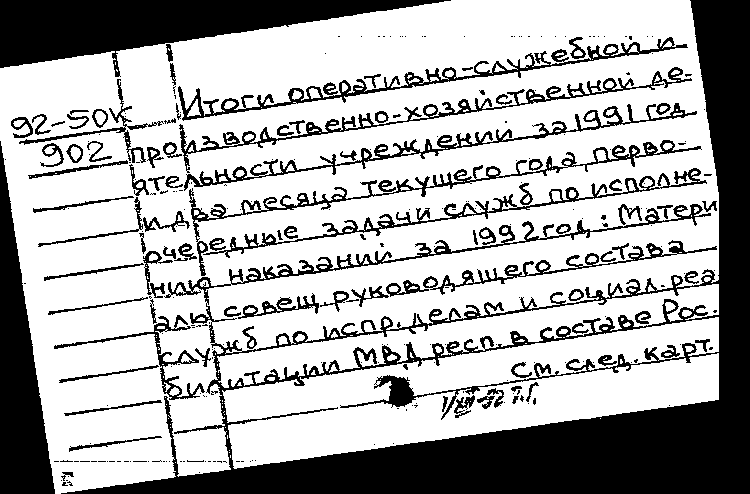 92-50К
902
Итоги оперативно-служебной и
производственно-хозяйственной де-
ятельности учреждений за 1991 год
и два месяца текущего года, перво-
очередные задачи служб по исполне-
нию наказаний за 1992 год : Матери
алы совещ. руководящего состава
служб по испр. делам и социал. реа
билитации МВД респ. в составе Рос.
См. след. карт.